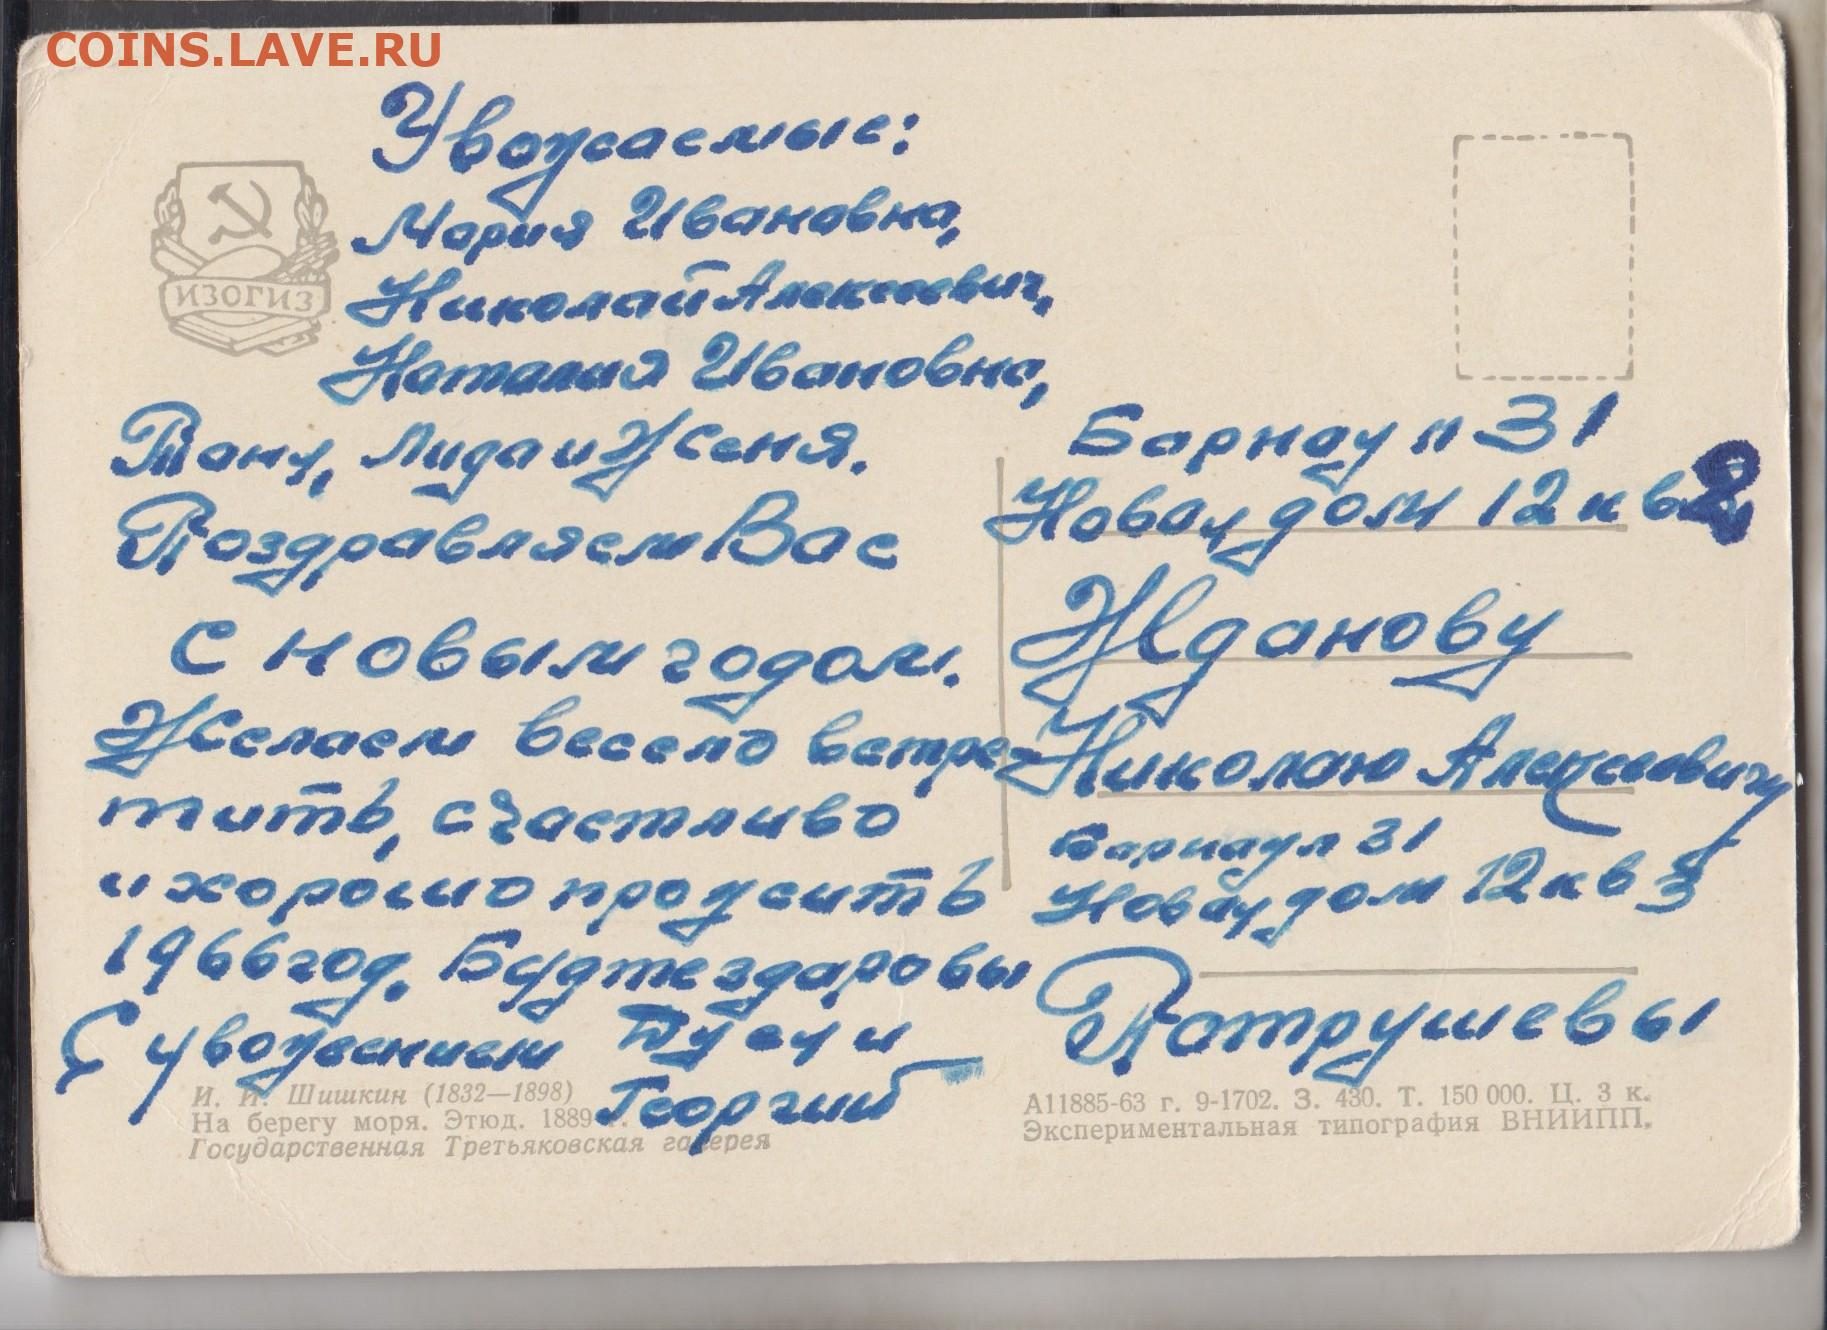 COINS.LAVE.RU
Уважаемые:
Мария Ивановна,
Николай Алексеевич,
Наталия Ивановна,
Таня, Лида и Женя.
Поздравляем Вас
с новым годом.
Желаем весело встре-
тить, счастливо
и хорошо прожить
1966 год. Будте здаровы
С уважением Дуся и
Георгий
ИЗОГИЗ
И. И. Шишкин (1832—1898)
На берегу моря. Этюд. 1889 г.
Государственная Третьяковская галерея
Барнаул 31
Новая дом 12 кв 2
Жданову
Николаю Алексеевичу
Барнаул 31
Новая дом 12 кв 3
Патрушевы
А11885-63 г. 9-1702. З. 430. Т. 150 000. Ц. 3 к.
Экспериментальная типография ВНИИПП.